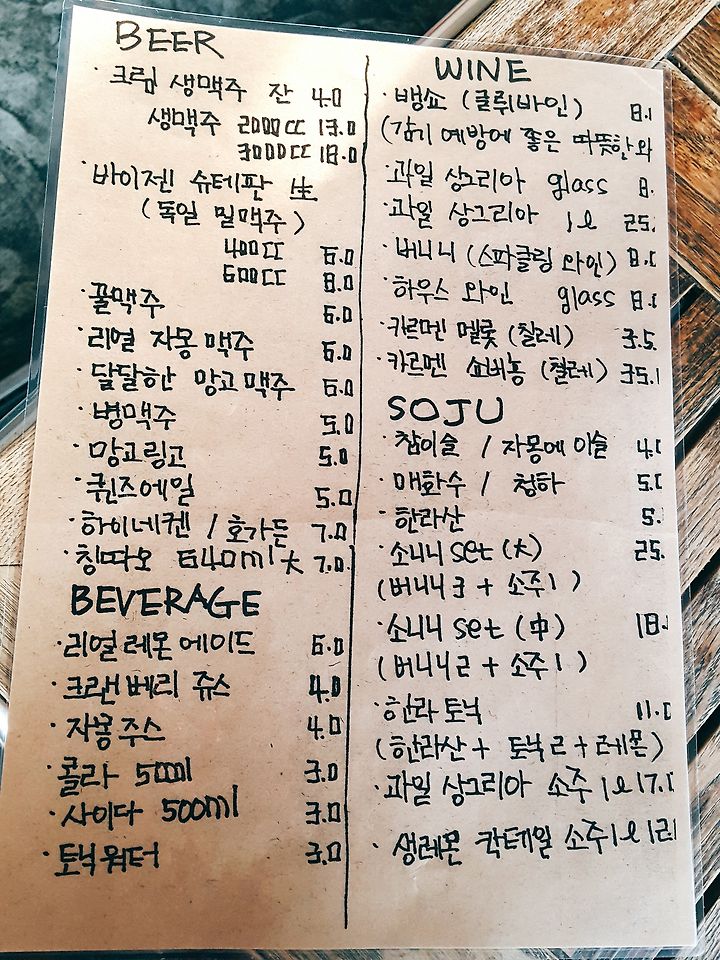 BEER
· 크림 생맥주 잔 4.0
생맥주 2000cc 13.0
3000cc 18.0
· 바이젠 슈테판 生
(독일 밀맥주)
400cc 6.0
600cc 8.0
· 꿀맥주 6.0
· 리얼 자몽 맥주 6.0
· 달달한 망고 맥주 6.0
· 병맥주 5.0
· 망고링고 5.0
· 퀸즈에일 5.0
· 하이네켄 / 호가든 7.0
· 칭따오 640ml 大 7.0
BEVERAGE
· 리얼 레몬 에이드 6.0
· 크랜베리 쥬스 4.0
· 자몽 주스 4.0
· 콜라 500ml 3.0
· 사이다 500ml 3.0
· 토닉워터 3.0
WINE
· 뱅쇼 (글뤼바인) 8.
(감기 예방에 좋은 따뜻한 와
· 과일 상그리아 glass 8.
· 과일 상그리아 1ℓ 25.
· 버니니 (스파클링 와인) 8.0
· 하우스 와인 glass 8.0
· 카르멘 멜롯 (칠레) 3.5.
· 카르멘 쇼비뇽 (칠레) 35.
SOJU
· 참이슬 / 자몽에 이슬 4.0
· 매화수 / 청하 5.0
· 한라산 5.
· 소니니 set (大) 25.
(버니니 3 + 소주 1)
· 소니니 set (中) 18.
(버니니 2 + 소주 1)
· 한라 토닉 11.0
(한라산 + 토닉 2 + 레몬)
· 과일 상그리아 소주 1ℓ 17.
· 생레몬 칵테일 소주 1ℓ